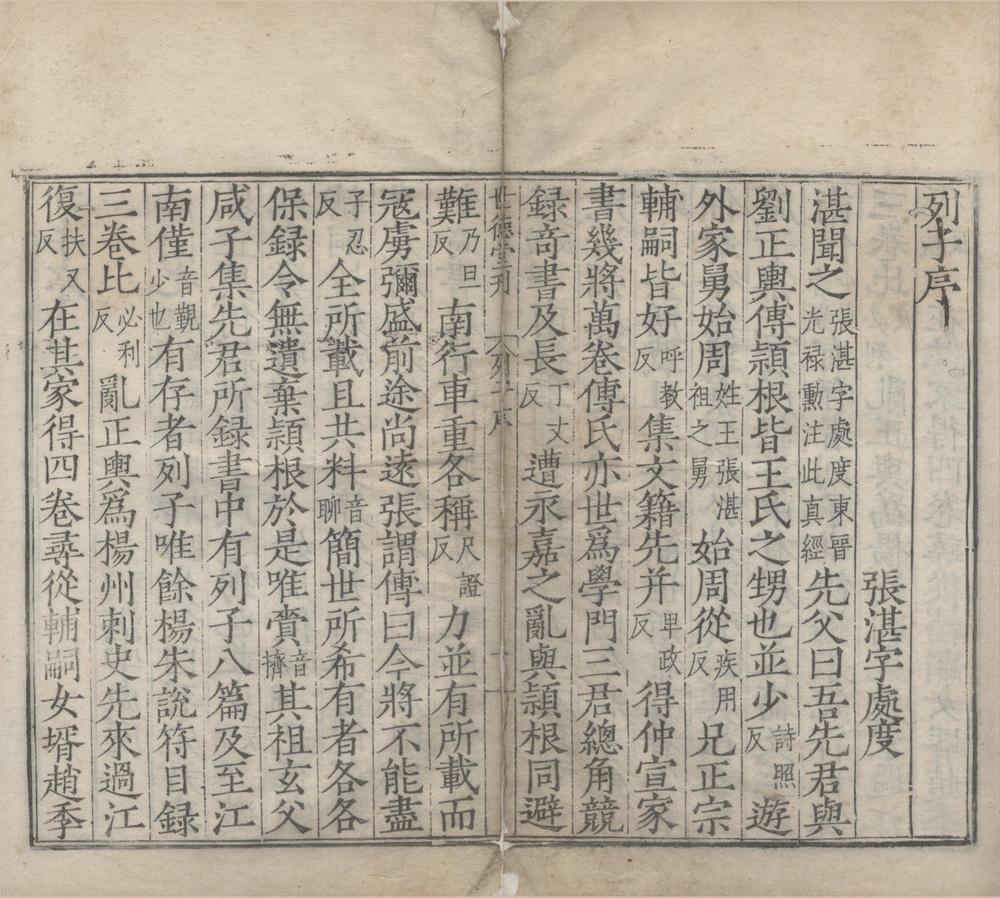 列子序
張湛字處度
湛聞之張湛字處度東晉光禄勲注此真經先父曰吾先君與
劉正輿傅頴根皆王氏之甥也並少詩照反遊
外家舅始周姓王張湛祖之舅始周從疾用反兄正宗
輔嗣皆好呼教反集文籍先并卑政反得仲宣家
書幾將萬卷傅氏亦世爲學門三君總角競
録竒書及長丁丈反遭永嘉之亂與頴根同避
世德堂刊 列子序 一
難乃旦反南行車重各稱尺證反力並有所載而
寇虜彌盛前途尚遠張謂傅曰今將不能盡
全所載且共料音聊簡世所希有者各各
保録令無遺棄頴根於是唯賷音擠其祖玄父
咸子集先君所録書中有列子八篇及至江
南僅音覲少也有存者列子唯餘楊朱説符目録
三卷比必利反亂正輿爲楊州刺史先來過江
復扶又反在其家得四卷尋從輔嗣女壻趙季